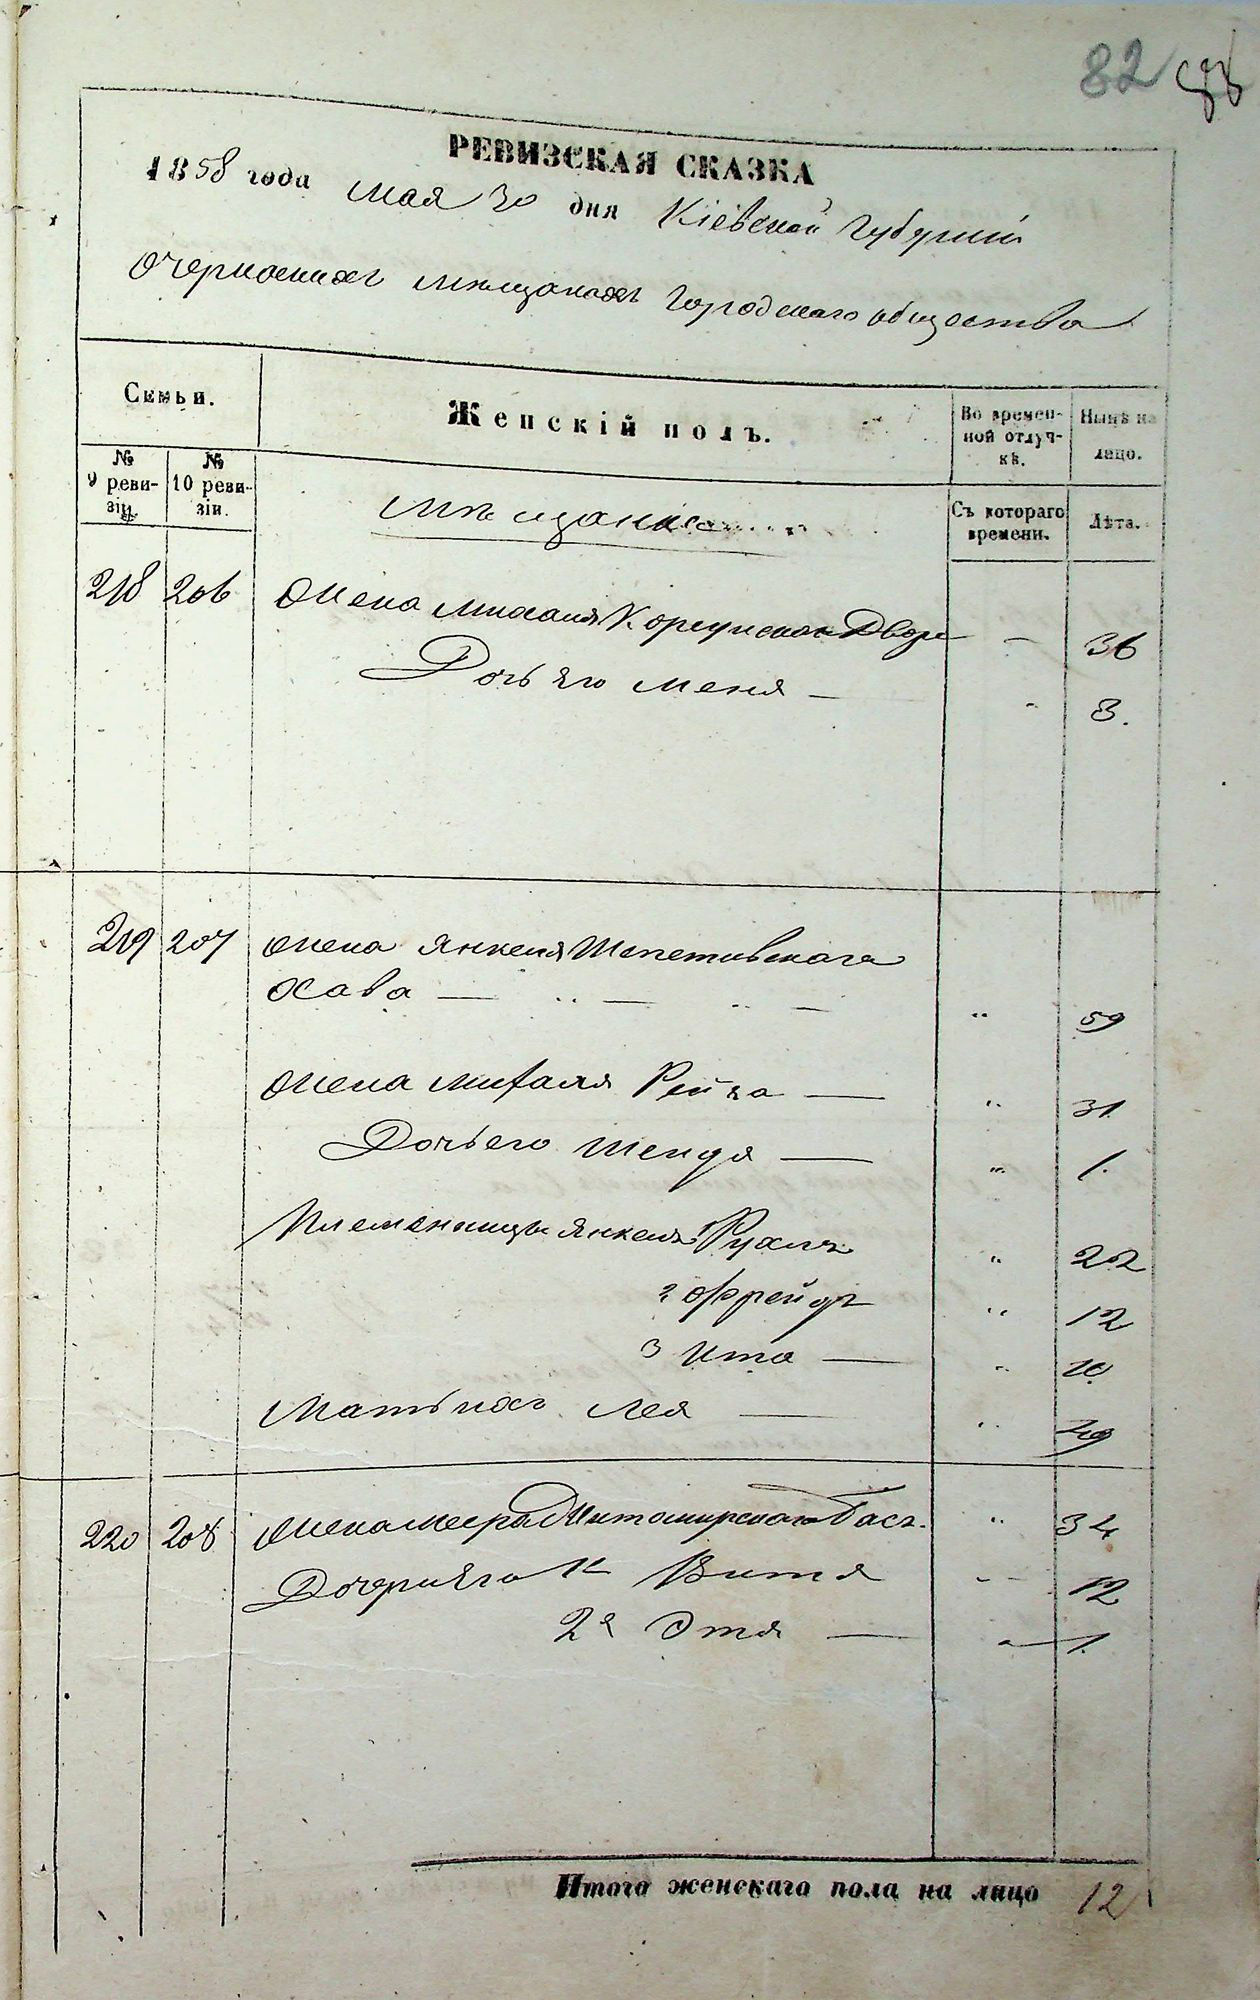 82
РЕВИЗСКАЯ СКАЗКА
1858 года мая 30 дня Кіевской Губерніи
о черкаскихъ мѣщанахъ городскаго общества
Семьи.
Женскій полъ.
Во времен-
ной отлуч-
кѣ.
Нынѣ на
лицо.
№
9 реви-
зіи.
№
10 реви-
зіи.
Съ котораго
времени.
Лѣта.
Мѣщане
218 206 Жена Михаля Корсунскаго Двося - 36
Дочь его Меня - 8.
219 207 жена Янкеля Шепетовскаго
Хава - " 59
Жена михаля Рейза - " 31
Дочь его Шендя - " 1.
Племеницы Янкеля 1 Рухля " 22
2 Фрейда " 12
3 Ита - " 10
Мать ихъ Лея - " 49
220 208 Жена меера Житомирскаго Бася. " 34
Дочери его 1я Витя " 12
2я Этя - " 1.
Итого женскаго пола на лицо 12